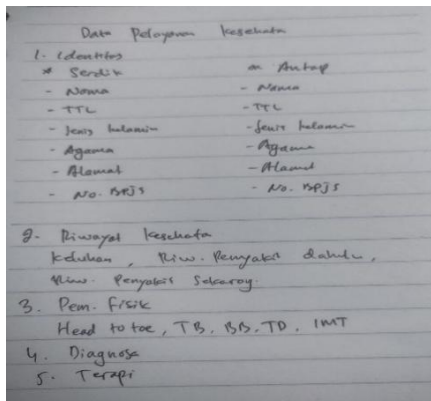 Data Pelayanan Kesehatan
1. Identitas
* Serdik
- Nama
- TTL
- Jenis kelamin
- Agama
- Alamat
- No. BPJS
- Nama
- TTL
- Jenis kelamin
- Agama
- Alamat
- No. BPJS
2. Riwayat Kesehatan
Keluhan, Riw. Penyakit dahulu,
Riw. Penyakit Sekarang.
3. Pem. Fisik
Head to toe, TB, BB, TD, IMT
4. Diagnosa
5. Terapi